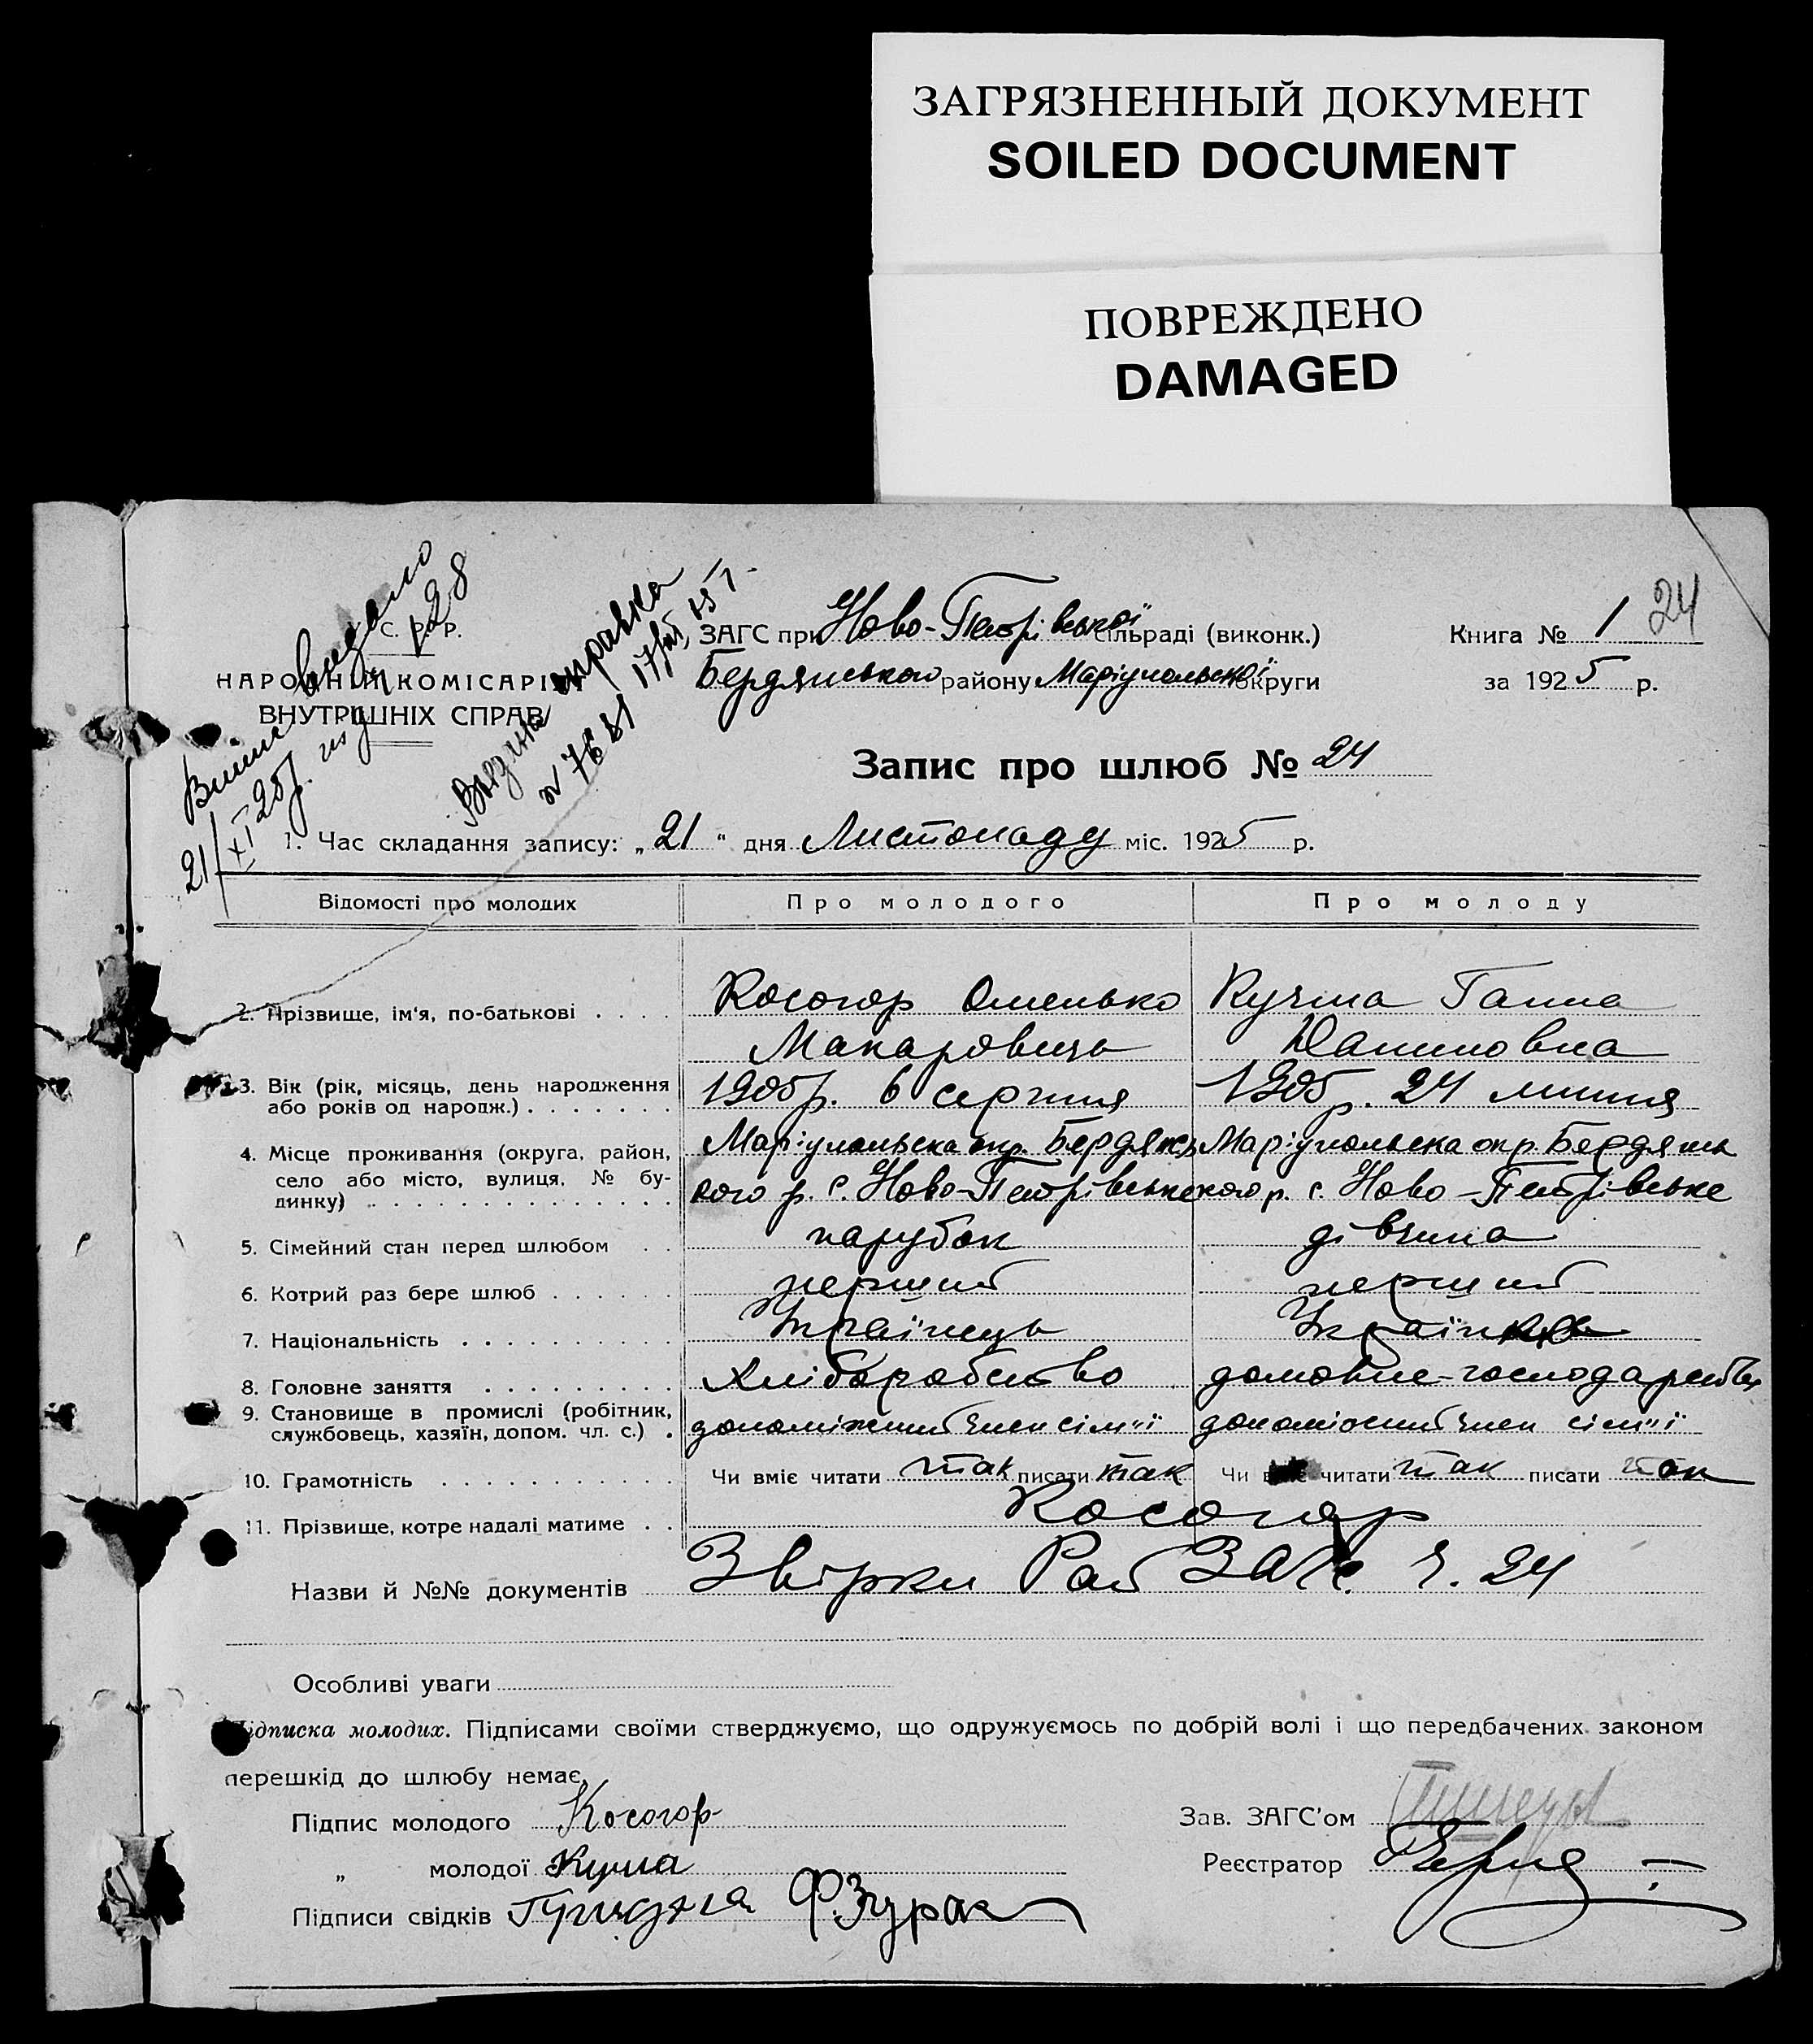 ЗАГРЯЗНЕННЫЙ ДОКУМЕНТ
SOILED DOCUMENT
ПОВРЕЖДЕНО
DAMAGED
24
С. Р. Р.
НАРОДНІЙ КОМІСАРІЯТ
ВНУТРІШНІХ СПРАВ
Випис видано
21/XI 25р. за № 28
справка
№ 7681 17
ЗАГС при Ново-Петрівської сільраді (виконк.)
Книга № 1
Бердянського району Маріупольскої округи
за 1925 р.
Запис про шлюб № 24
1. Час складання запису: „21“ дня Листопаду міс. 1925 р.
Відомості про молодих Про молодого Про молоду
2. Прізвище, ім'я, по-батькові . . . . Косогор Омелько Кучма Ганна
Макаровичь Даниловна
3. Вік (рік, місяць, день народження 1905р. 6 серпня 1905р. 24 липня
або років од народж.) . . . . . . .
4. Місце проживання (округа, район, Маріупольська окр. Бердянсь Маріупольська окр. Бердянсь
село або місто, вулиця, № бу- кого р. с. Ново-Петрівське кого р. с. Ново-Петрівське
динку) . . . . . . . . . . . . . .
5. Сімейний стан перед шлюбом . . парубок дівчина
6. Котрий раз бере шлюб . . . . . . перший перший
7. Національність . . . . . . . . . Українець
8. Головне заняття . . . . . . . . . Хліборобство домовне-господарство
9. Становище в промислі (робітник, допоміжний член сім"ї допоміжний член сім"ї
службовець, хазяїн, допом. чл. с.) .
10. Грамотність . . . . . . . . . . Чи вміє читати так писати так Чи вміє читати так писати так
11. Прізвище, котре надалі матиме . . Косогор
Назви й №№ документів Звірки Рай ЗАГС. ч. 24
Особливі уваги
Підписка молодих. Підписами своїми стверджуємо, що одружуємось по добрій волі і що передбачених законом
перешкід до шлюбу немає.
Підпис молодого Косогор
Зав. ЗАГС'ом
„ молодої Кучма
Реєстратор
Підписи свідків